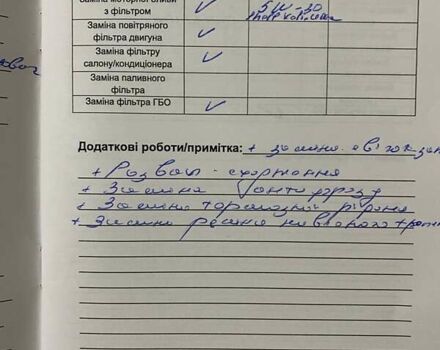 Заміна моторної оливи
з фільтром 5W-30
Заміна повітряного
фільтра двигуна
Заміна фільтру
салону/кондиціонера
Заміна паливного
фільтра
Заміна фільтра ГБО
Додаткові роботи/примітка: + заміна
+ Розвал - сходження
+ Заміна Антифризу
+ Заміна тормозной рідини
+ Заміна